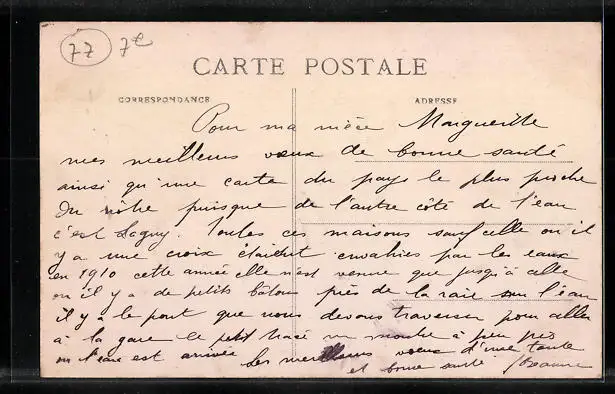 77 7e
CARTE POSTALE
CORRESPONDANCE ADRESSE
Pour ma nièce Marguerite
mes meilleurs vœux de bonne santé
ainsi qu'une carte du pays le plus proche
du nôtre puisque de l'autre côté de l'eau
c'est Lagny. Toutes ces maisons sauf celle ou il
y a une croix étaient envahies par les eaux
en 1910 cette année elle n'est venue que jusqu'à celle
ou il y a de petits bâtons près de la raie sur l'eau
il y a le pont que nous devons traverser pour aller
à la gare le petit tracé montre à peu près
ou l'eau est arrivée Les meilleurs vœux d'une tante
et bonne santé